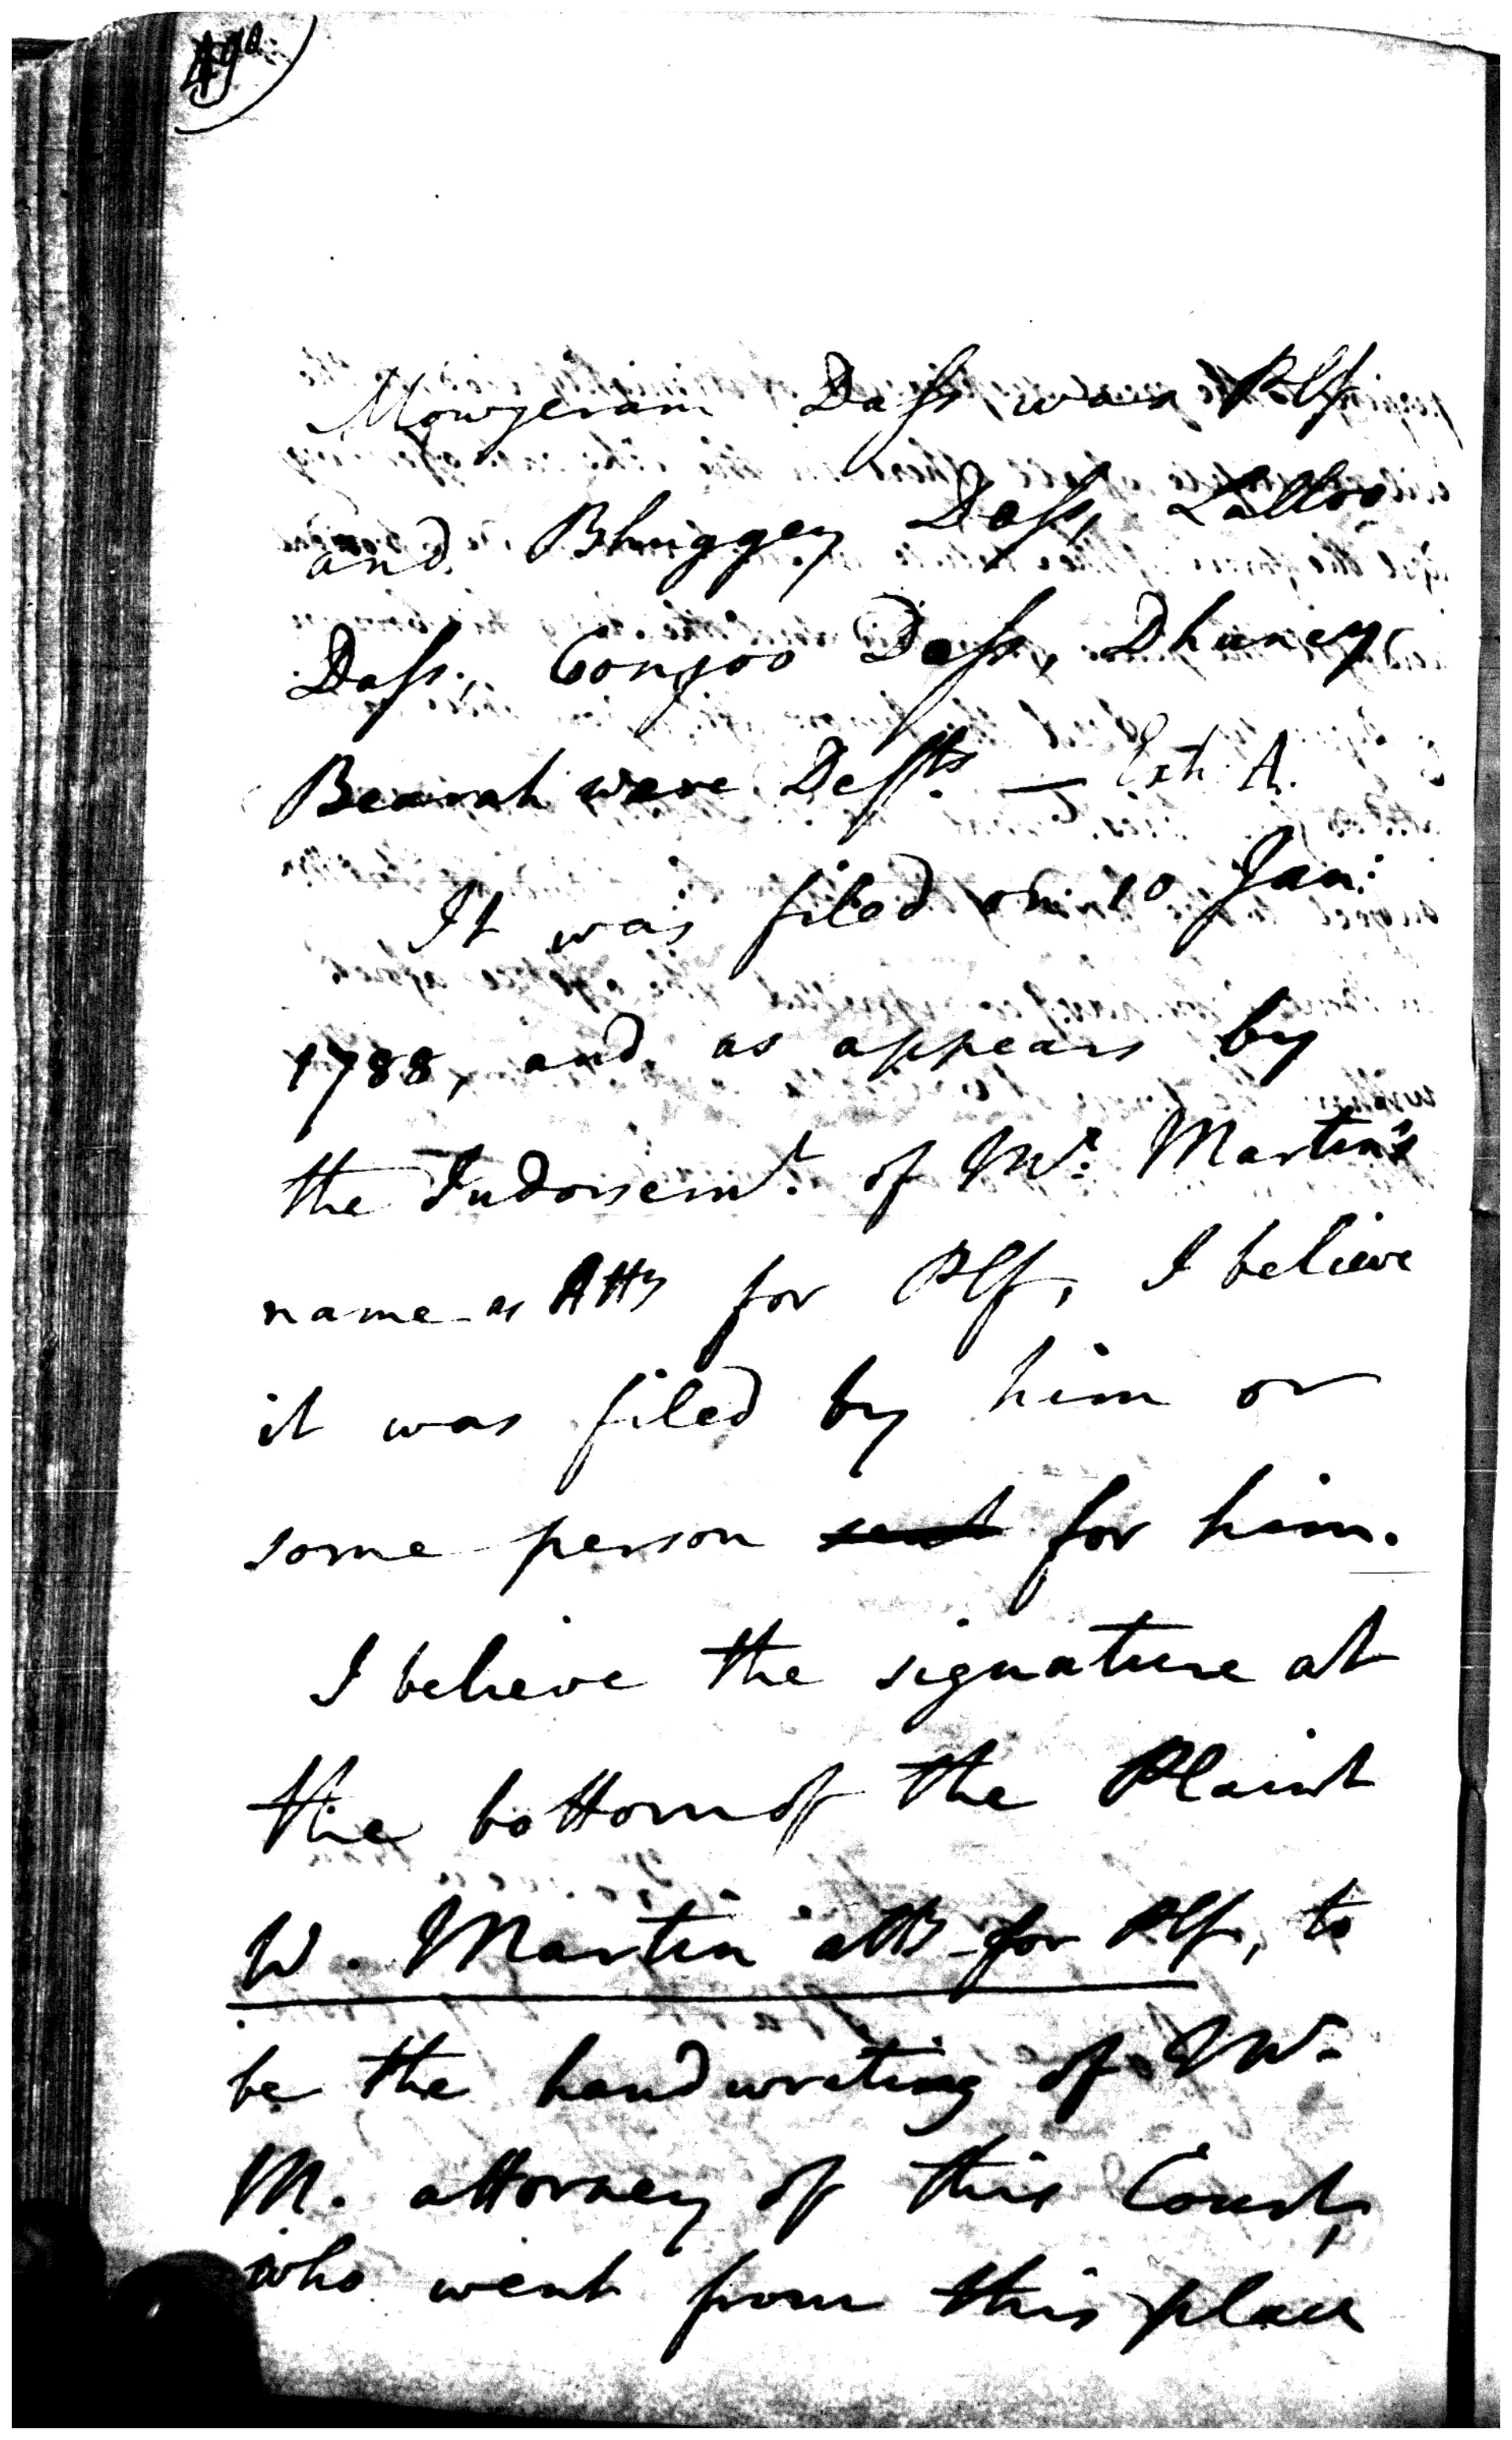 49a
Mowjeram Dass was Plf
and Bhuggey Dass, Lalloo
Dass, Conjoo Dass, Dhuney
Bearah were Defts. — Exh: A.
It was filed on 10 Jan:
1788, and as appears by
the Indorsemt. of Mr. Martin's
name as Atty for Plf, I believe
it was filed by him or
some person sent for him.
I believe the signature at
the bottom of the Plaint
W. Martin atty for Plf, to
be the handwriting of Mr.
M. attorney of this Court,
who went from this place